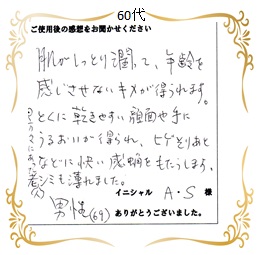 60代
ご使用後の感想をお聞かせください
肌がしっとり潤って、年齢を
感じさせないキメが得られます。
とくに乾きやすい顔面や手に
うるおいが得られ、ヒゲそりあと
などに快い感触をもたらします。
シミも薄れました。
イニシャル A・S 様
男性(69)
ありがとうございました。